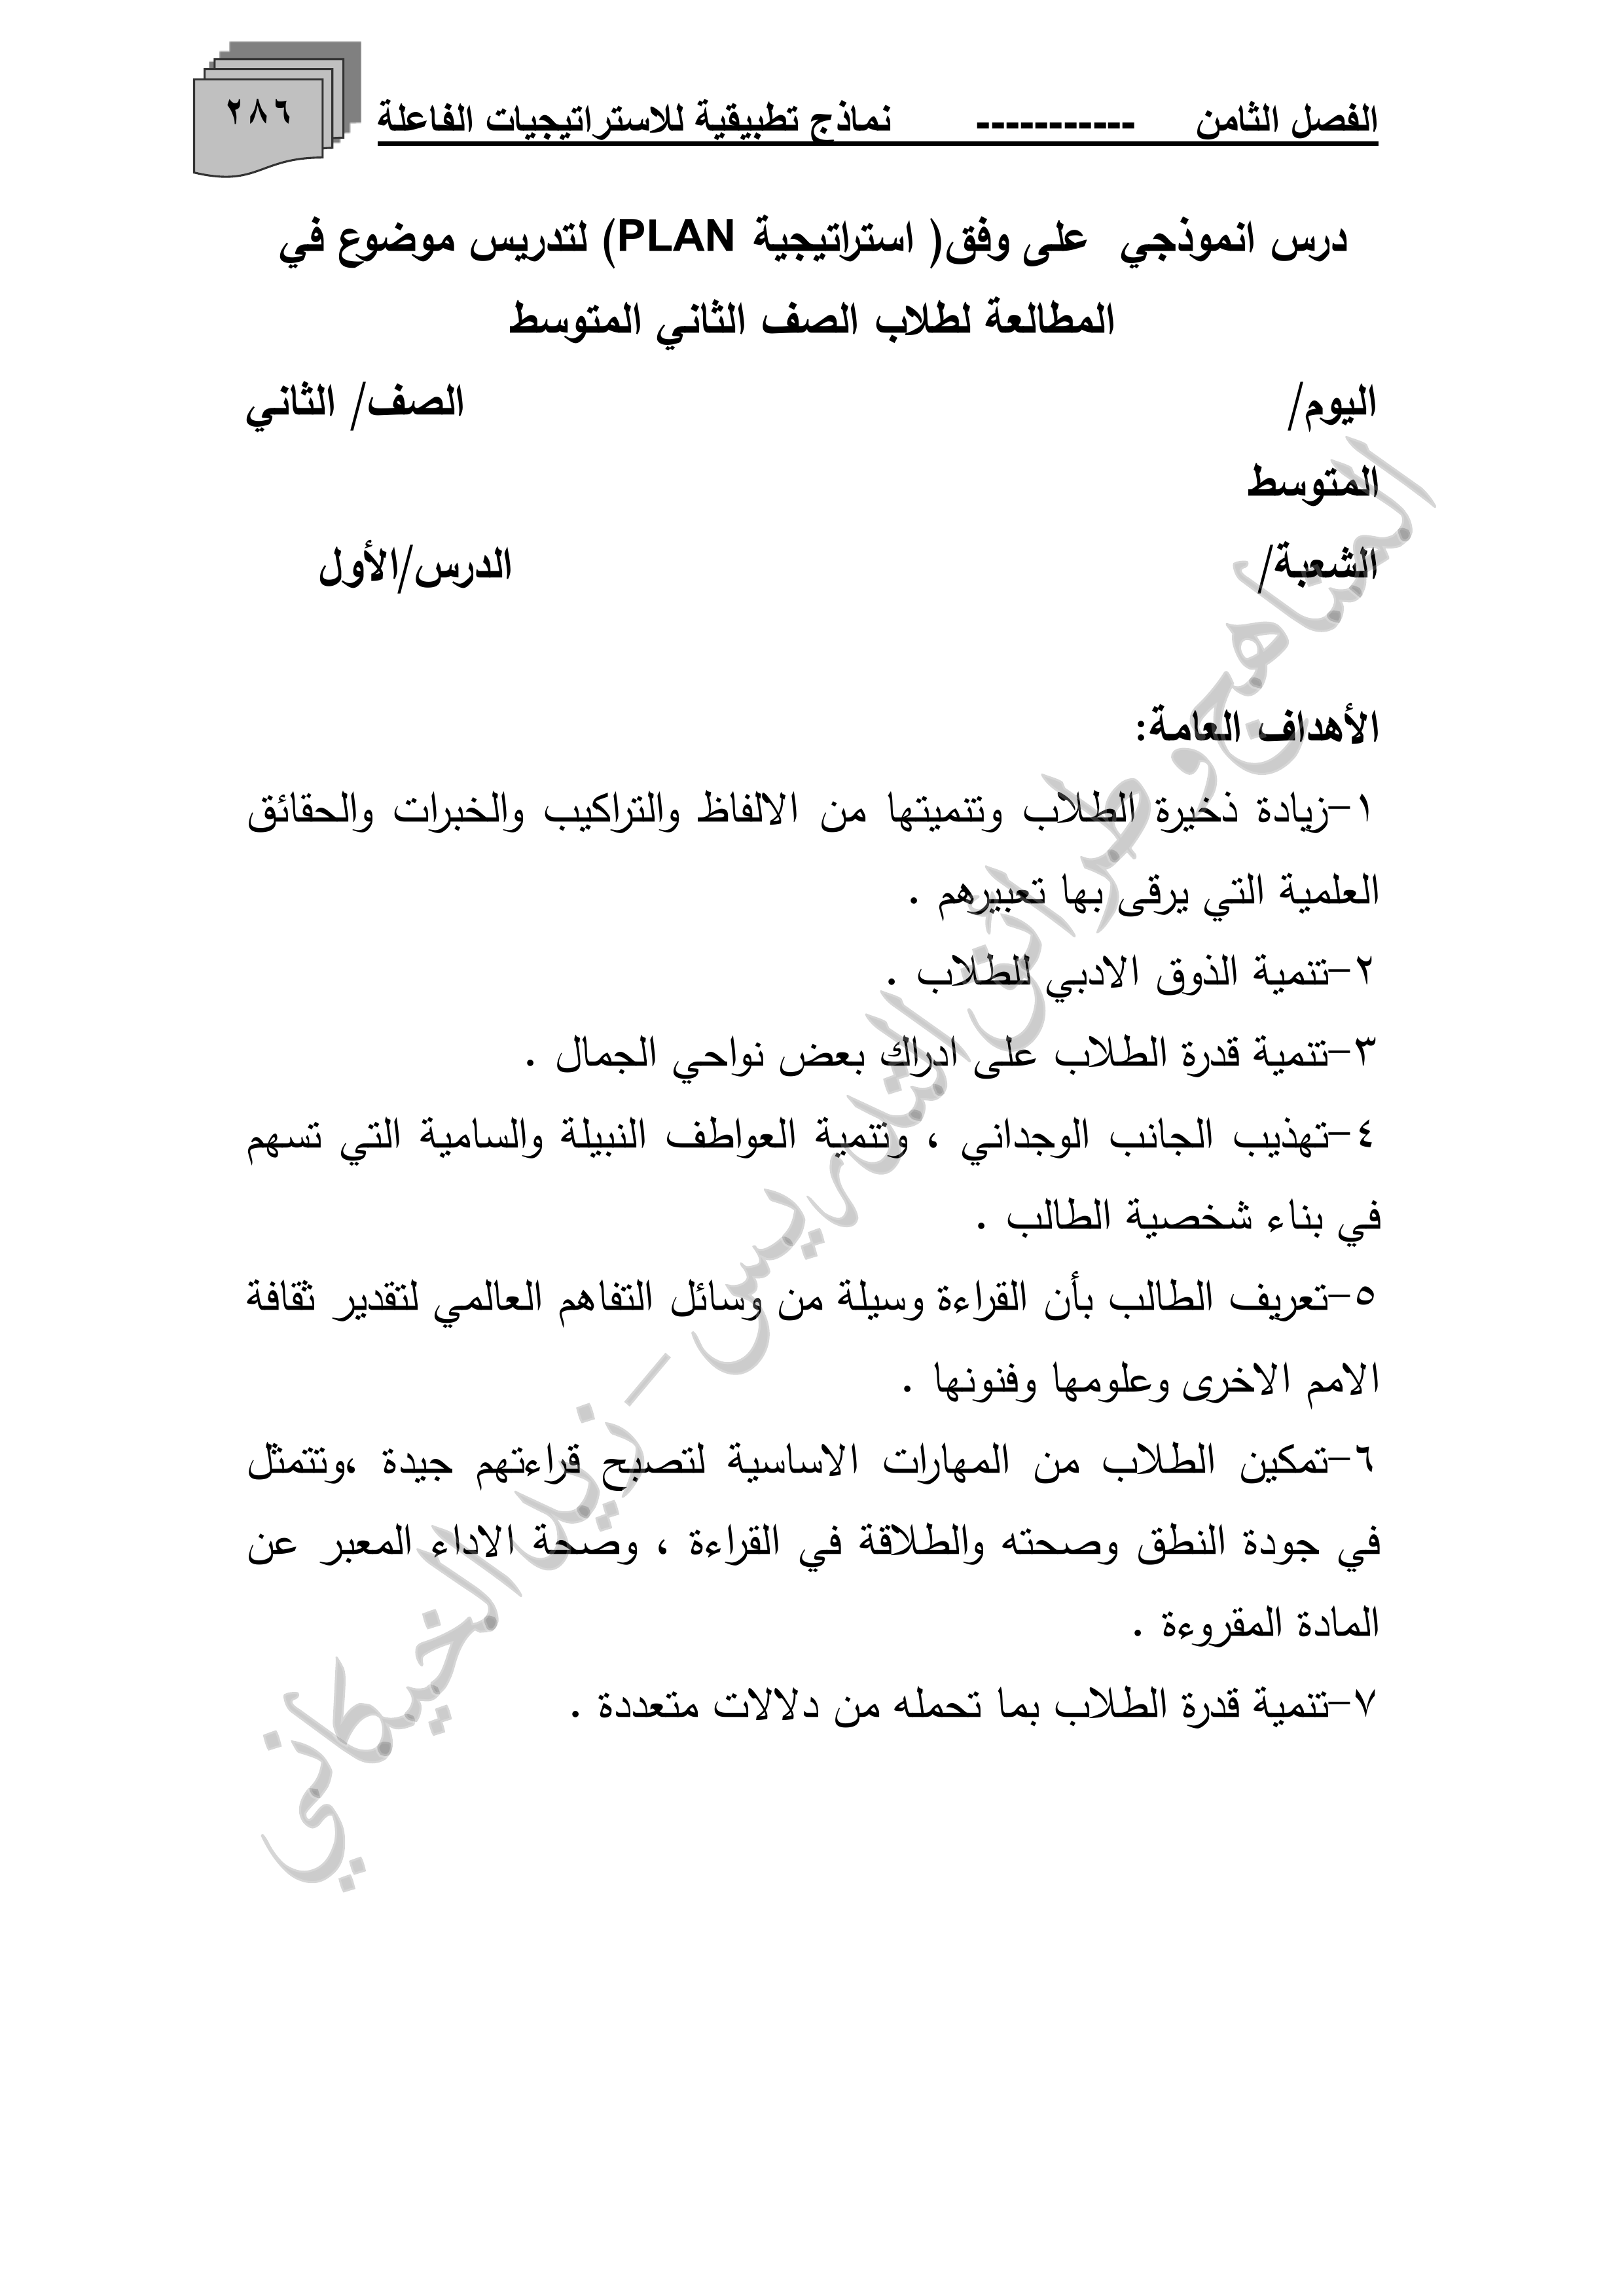 الفصل الثامن ----------- نماذج تطبيقية للاستراتيجيات الفاعلة
٢٨٦
درس انموذجي على وفق( استراتيجية PLAN) لتدريس موضوع في
المطالعة لطلاب الصف الثاني المتوسط
اليوم/ الصف/ الثاني
المتوسط
الشعبة/ الدرس/الأول
الأهداف العامة:
١-زيادة ذخيرة الطلاب وتنميتها من الالفاظ والتراكيب والخبرات والحقائق
العلمية التي يرقى بها تعبيرهم .
٢-تنمية الذوق الادبي للطلاب .
٣-تنمية قدرة الطلاب على ادراك بعض نواحي الجمال .
٤-تهذيب الجانب الوجداني ، وتنمية العواطف النبيلة والسامية التي تسهم
في بناء شخصية الطالب .
٥-تعريف الطالب بأن القراءة وسيلة من وسائل التفاهم العالمي لتقدير ثقافة
الامم الاخرى وعلومها وفنونها .
٦-تمكين الطلاب من المهارات الاساسية لتصبح قراءتهم جيدة ،وتتمثل
في جودة النطق وصحته والطلاقة في القراءة ، وصحة الاداء المعبر عن
المادة المقروءة .
٧-تنمية قدرة الطلاب بما تحمله من دلالات متعددة .
المناهج وطرائق التدريس - زيد الخيكاني